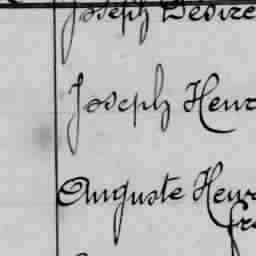 Joseph Desire
Joseph Henr
Auguste Henr